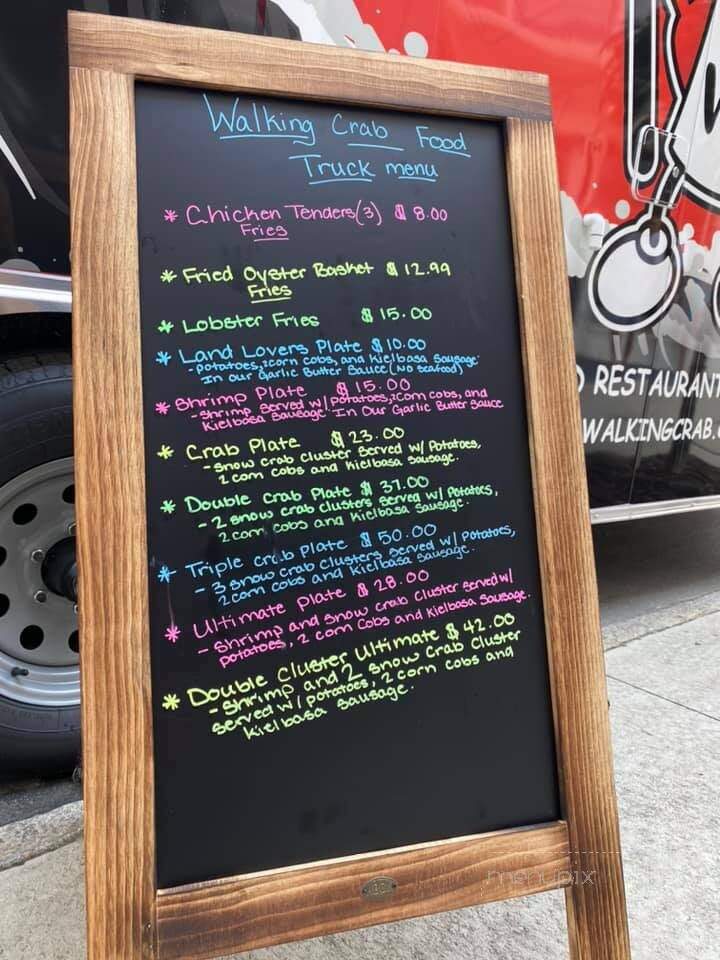 Walking Crab Food
Truck menu
* Chicken Tenders(3) $ 8.00
Fries
* Fried Oyster Basket $ 12.99
Fries
* Lobster Fries $ 15.00
* Land Lovers Plate $ 10.00
- Potatoes, 2corn cobs, and Kielbasa Sausage.
In Our Garlic Butter Sauce (No Seafood)
* Shrimp Plate $ 15.00
- Shrimp served w/ Potatoes, 2corn cobs, and
Kielbasa Sausage. In Our Garlic Butter Sauce
* Crab Plate $ 23.00
- Snow crab cluster served w/ Potatoes,
2 corn cobs and kielbasa sausage.
* Double Crab Plate $ 37.00
- 2 snow crab clusters served w/ Potatoes,
2 corn cobs and Kielbasa Sausage.
* Triple crab Plate $ 50.00
- 3 snow crab clusters served w/ Potatoes,
2 corn cobs and kielbasa sausage.
* Ultimate Plate $ 28.00
- Shrimp and snow crab cluster served w/
potatoes, 2 corn cobs and Kielbasa Sausage.
* Double Cluster Ultimate $ 42.00
- Shrimp and 2 snow crab cluster
served w/ potatoes, 2 corn cobs and
kielbasa sausage.
RESTAURANT
WALKINGCRAB.
menupix